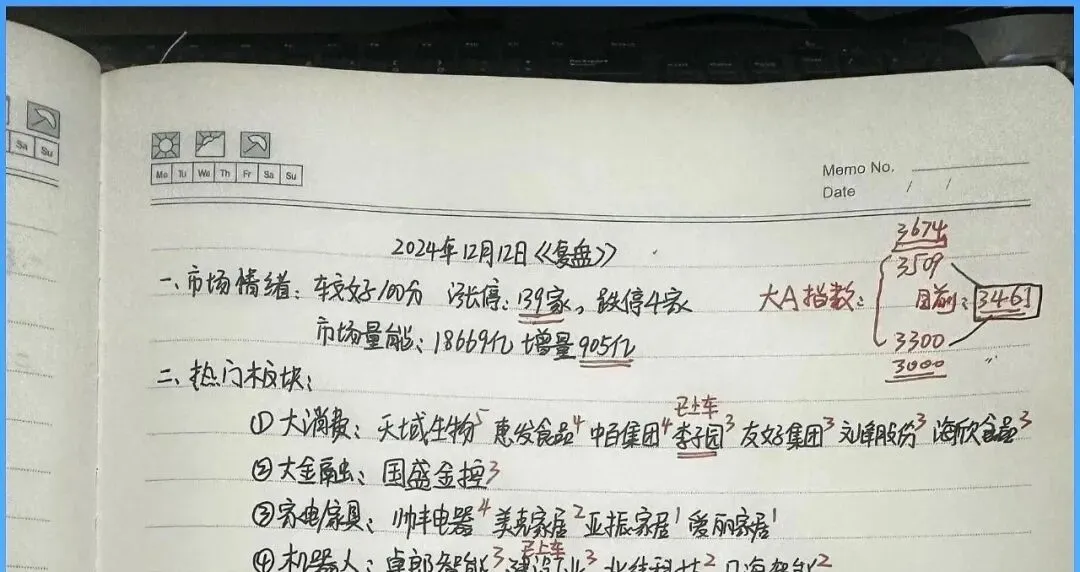 Sa Su
Mo Tu We Th Fr Sa Su
Memo No.
Date / /
2024年12月12日《复盘》
3674
3509
一、市场情绪：较好100分 涨停：139家，跌停4家
大A指数： 目前：3461
市场量能：18669亿 增量905亿
3300
3000
二、热门板块：
已上车
①大消费：天域生物5 惠发食品4 中百集团4 李子园3 友好集团3 刘峰股份3 海欣食品3
②大金融：国盛金控3
③家电/家具：帅丰电器4 美克家居2 亚振家居1 爱丽家居1
已上车
④机器人：卓郎智能3 建设工业3